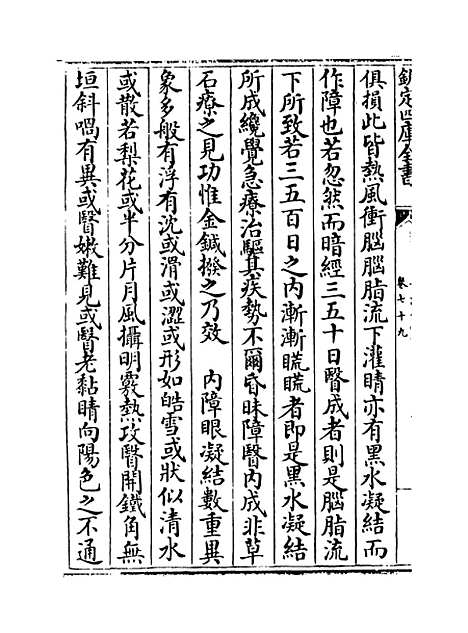 欽定四庫全書
卷七十九
俱損此皆熱風衝腦腦脂流下灌睛亦有黑水凝結而
作障也若忽然而暗經三五十日翳成者則是腦脂流
下所致若三五百日之内漸漸䀮䀮者即是黑水凝結
所成纔覺急療治驅其疾勢不爾昏昧障翳内成非草
石療之見功惟金鍼撥之乃效　内障眼凝結數重異
象多般有浮有沈或滑或澀或形如皓雪或狀似清水
或散若梨花或半分片月風攝明霧熱攻翳開鐵角無
垣斜喎有異或翳嫩難見或翳老黏睛向陽色之不通